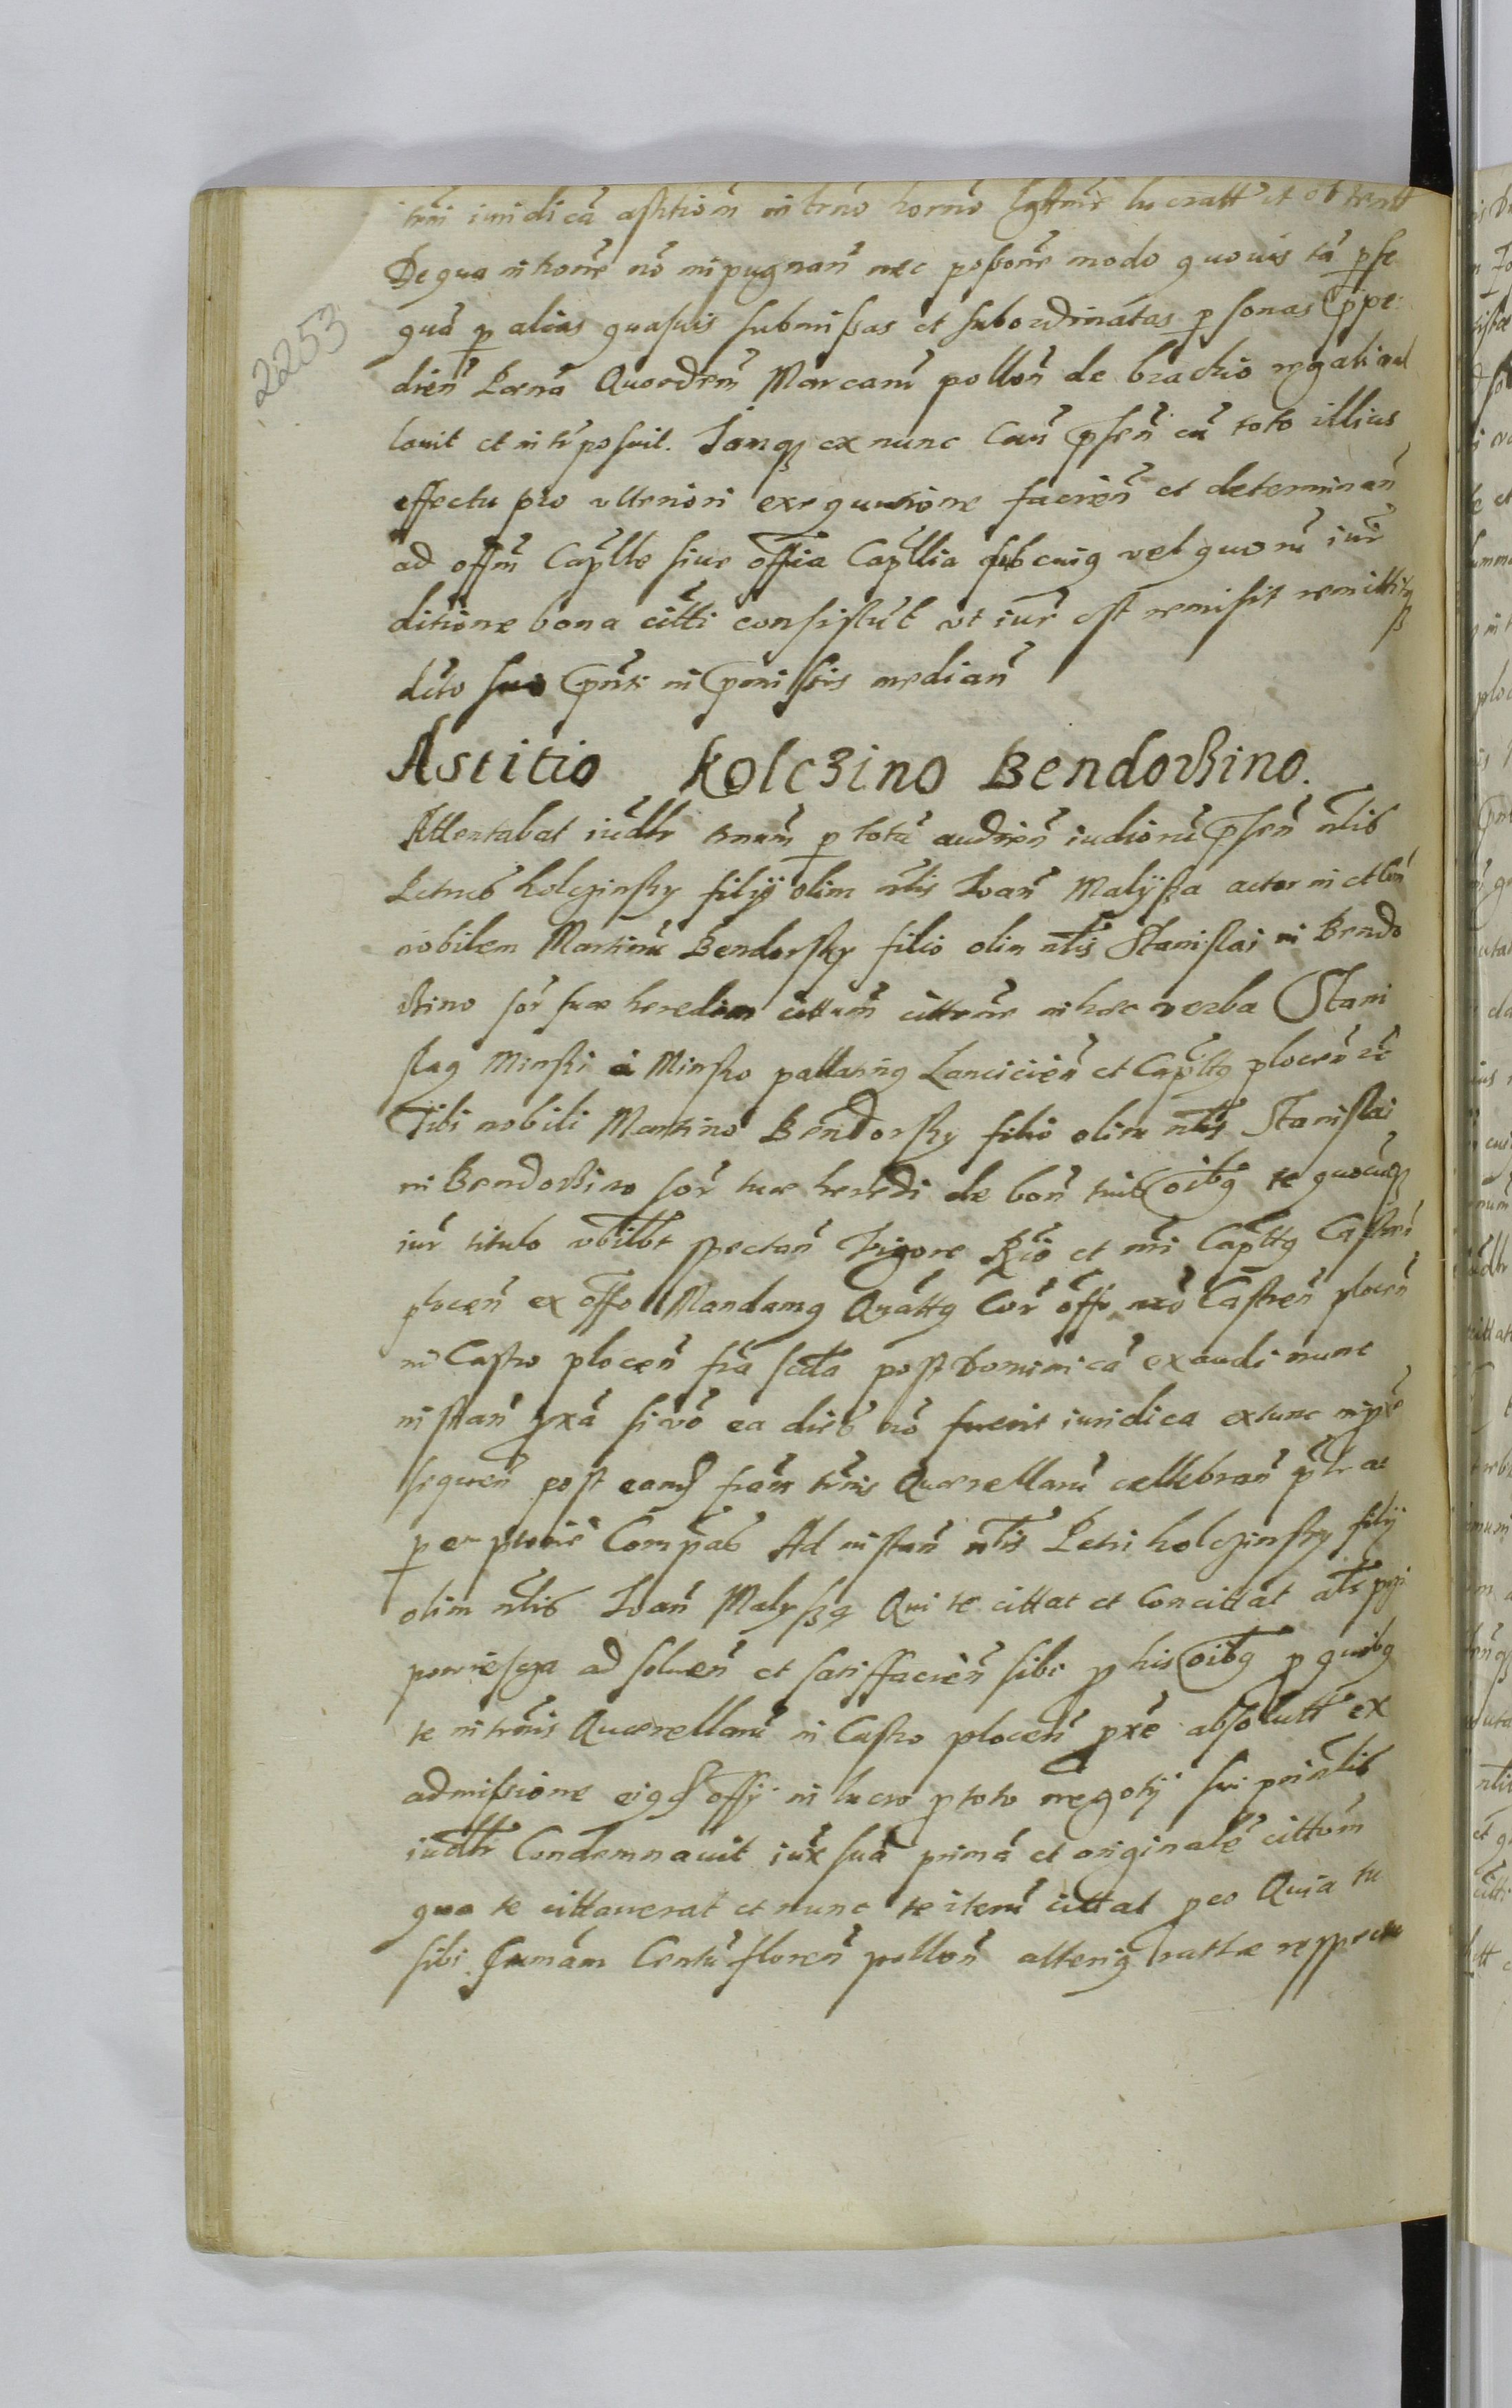 iuridicā astitioñ in trno lucratt et obtentt
De qua intrōne nō inpugnañ nec possone modo quouis tā p se
quā p alias quasuis submissas et subordinatas p sonas
dieñ Pœna Quordm Marcarū polloñ de brachio regali val
lauit et intrposuit. Iamqȝ ex nunc Cām pseñ cū toto illius
effectu pro vlteriori exequutione facień et determinañ
ad offm Caplle siue offia Capllia sub cuiq vel quorū iur
ditione bona citti consistūt vt iur est remisit remittitqȝ
dcto suo pnti in pmissis mediań
Astitio Kolczino Bendorſkino.
Attentabat iudlr tmnm p totā audieñ iudiorū pseñ nlis
Petrus kolczinsky filiȷ olim nlis Ioań Malyßa actor in et coñ
nobilem Martinū Bendorsky filio olim nlis Stanislai in Bendo
rſkino sor suæ heredem cittum cittone in hæc verba Stani
slaq Minski a Minsko pallatinq Lancicień et Capłtq plocen̄ ze
Tibi nobili Martino Bendorsky filio olim nlis Stanislai
in Bendorſkino sor tuæ heredi de boñ tuis oibq te quocuqȝ
iur titulo vbilbt spectań Vigore Rio et nri Capłttq Castreń
ploceń ex offo Mandamq Quattq Cor offo nro Castreñ ploceñ
in Castro ploceñ fra scda post Dominicā exaudi nunc
instań pxā si vō ea dies nō fuerit iuridica extunc in pxe
sequeń post eamqȝ fram trmis Querellarū cellebrań pltr ac
peremptorie Compas Ad instań nlis Petri kolczinsky filij
olim nlis Ioań Malyßą Qui te cittat et Concittat als przi
powiescza ad solueń et satisfacień sibi p his oibq p quibq
te in trmis Querellarū in Castro ploceń pxe absolutt ex
admissione eiqd offȷ in lucro p toto negotij sui prinlis
iudlr Condemnauit iux suā primā et originale cittom
qua te cittauerat et nunc te iterū cittat p eo Quia tu
sibi sumām Centū floreń polloń alteriq rattæ respectu
2253